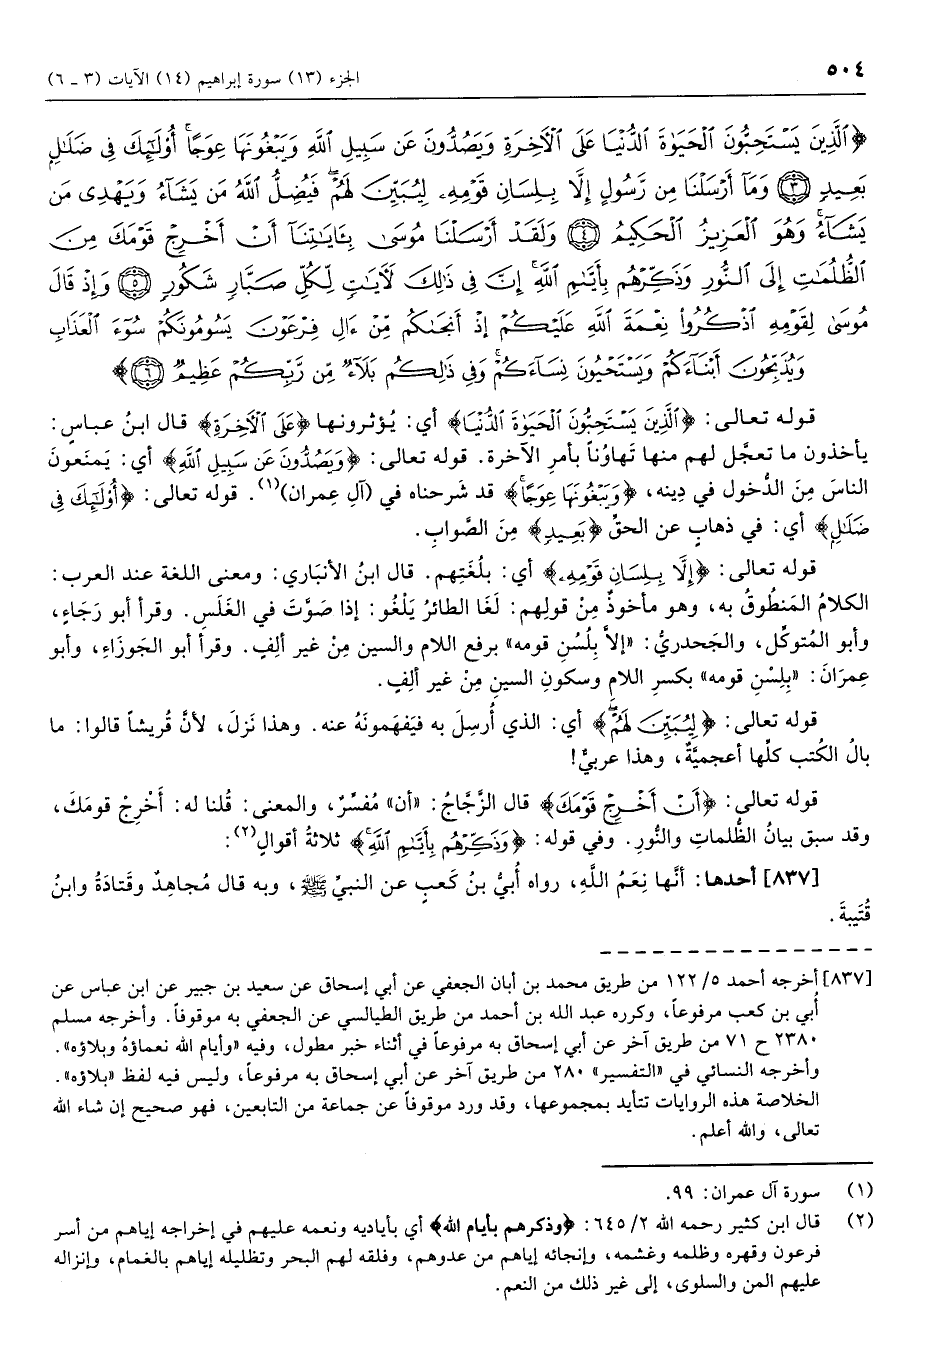 ٥٠٤
الجزء (١٣) سورة إبراهيم (١٤) الآيات (٣ ـ ٦)
﴿ٱلَّذِينَ يَسْتَحِبُّونَ ٱلْحَيَوٰةَ ٱلدُّنْيَا عَلَى ٱلْآخِرَةِ وَيَصُدُّونَ عَن سَبِيلِ ٱللَّهِ وَيَبْغُونَهَا عِوَجًا ۚ أُوْلَٰٓئِكَ فِى ضَلَٰلٍۭ
بَعِيدٍ ﴿٣﴾ وَمَآ أَرْسَلْنَا مِن رَّسُولٍ إِلَّا بِلِسَانِ قَوْمِهِۦ لِيُبَيِّنَ لَهُمْ ۖ فَيُضِلُّ ٱللَّهُ مَن يَشَآءُ وَيَهْدِى مَن
يَشَآءُ ۚ وَهُوَ ٱلْعَزِيزُ ٱلْحَكِيمُ ﴿٤﴾ وَلَقَدْ أَرْسَلْنَا مُوسَىٰ بِـَٔايَٰتِنَآ أَنْ أَخْرِجْ قَوْمَكَ مِنَ
ٱلظُّلُمَٰتِ إِلَى ٱلنُّورِ وَذَكِّرْهُم بِأَيَّىٰمِ ٱللَّهِ ۚ إِنَّ فِى ذَٰلِكَ لَآيَٰتٍ لِّكُلِّ صَبَّارٍ شَكُورٍ ﴿٥﴾ وَإِذْ قَالَ
مُوسَىٰ لِقَوْمِهِ ٱذْكُرُواْ نِعْمَةَ ٱللَّهِ عَلَيْكُمْ إِذْ أَنجَىٰكُم مِّنْ ءَالِ فِرْعَوْنَ يَسُومُونَكُمْ سُوٓءَ ٱلْعَذَابِ
وَيُذَبِّحُونَ أَبْنَآءَكُمْ وَيَسْتَحْيُونَ نِسَآءَكُمْ ۚ وَفِى ذَٰلِكُم بَلَآءٌ مِّن رَّبِّكُمْ عَظِيمٌ ﴿٦﴾﴾
قوله تعالى: ﴿ٱلَّذِينَ يَسْتَحِبُّونَ ٱلْحَيَوٰةَ ٱلدُّنْيَا﴾ أي: يُؤثرونها ﴿عَلَى ٱلْآخِرَةِ﴾ قال ابنُ عباسٍ:
يأخذون ما تعجَّل لهم منها تَهاوُناً بأمرِ الآخرة. قوله تعالى: ﴿وَيَصُدُّونَ عَن سَبِيلِ ٱللَّهِ﴾ أي: يَمنَعونَ
الناسَ مِنَ الدُّخول في دِينه، ﴿وَيَبْغُونَهَا عِوَجًا ۚ﴾ قد شَرحناه في (آلِ عِمران)(١). قوله تعالى: ﴿أُوْلَٰٓئِكَ فِى
ضَلَٰلٍ﴾ أي: في ذهابٍ عن الحقِّ ﴿بَعِيدٍ﴾ مِنَ الصَّوابِ.
قوله تعالى: ﴿إِلَّا بِلِسَانِ قَوْمِهِۦ﴾ أي: بلُغَتِهم. قال ابنُ الأنبَاري: ومعنى اللغة عند العرب:
الكلامُ المَنطوقُ به، وهو مأخوذٌ مِنْ قولِهم: لَغَا الطائرُ يَلْغُو: إذا صَوَّتَ في الغَلَسِ. وقرأ أبو رَجَاءٍ،
وأبو المُتوكِّل، والجَحدريُّ: «إلاَّ بِلُسُنِ قومه» برفع اللام والسين مِنْ غير ألِفٍ. وقرأ أبو الجَوزَاءِ، وأبو
عِمرَانَ: «بِلِسْنِ قومه» بكسرِ اللام وسكونِ السينِ مِنْ غير ألِفٍ.
قوله تعالى: ﴿لِيُبَيِّنَ لَهُمْ ۖ﴾ أي: الذي أُرسِلَ به فيَفهَمونَهُ عنه. وهذا نَزلَ، لأنَّ قُريشاً قالوا: ما
بالُ الكُتب كلِّها أعجميَّةٌ، وهذا عربيٌّ!
قوله تعالى: ﴿أَنْ أَخْرِجْ قَوْمَكَ﴾ قال الزَّجَّاجُ: «أن» مُفسِّرٌ، والمعنى: قُلنا له: أَخْرِجْ قومَكَ،
وقد سبق بيانُ الظُّلماتِ والنُّورِ. وفي قوله: ﴿وَذَكِّرْهُم بِأَيَّىٰمِ ٱللَّهِ ۚ﴾ ثلاثةُ أقوالٍ(٢):
[٨٣٧] أحدها: أنَّها نِعَمُ اللَّهِ، رواه أُبيُّ بنُ كَعبٍ عن النبيِّ ﷺ، وبه قال مُجاهِدٌ وقَتادَةُ وابنُ
قُتَيبةَ.
[٨٣٧] أخرجه أحمد ٥/ ١٢٢ من طريق محمد بن أبان الجعفي عن أبي إسحاق عن سعيد بن جبير عن ابن عباس عن
أُبي بن كعب مرفوعاً، وكرره عبد الله بن أحمد من طريق الطيالسي عن الجعفي به موقوفاً. وأخرجه مسلم
٢٣٨٠ ح ٧١ من طريق آخر عن أبي إسحاق به مرفوعاً في أثناء خبر مطول، وفيه «وأيام الله نعماؤهُ وبلاؤه».
وأخرجه النسائي في «التفسير» ٢٨٠ من طريق آخر عن أبي إسحاق به مرفوعاً، وليس فيه لفظ «بلاؤه».
الخلاصة هذه الروايات تتأيد بمجموعها، وقد ورد موقوفاً عن جماعة من التابعين، فهو صحيح إن شاء الله
تعالى، والله أعلم.
(١) سورة آل عمران: ٩٩.
(٢) قال ابن كثير رحمه الله ٢/ ٦٤٥: ﴿وذكرهم بأيام الله﴾ أي بأياديه ونعمه عليهم في إخراجه إياهم من أسر
فرعون وقهره وظلمه وغشمه، وإنجائه إياهم من عدوهم، وفلقه لهم البحر وتظليله إياهم بالغمام، وإنزاله
عليهم المن والسلوى، إلى غير ذلك من النعم.